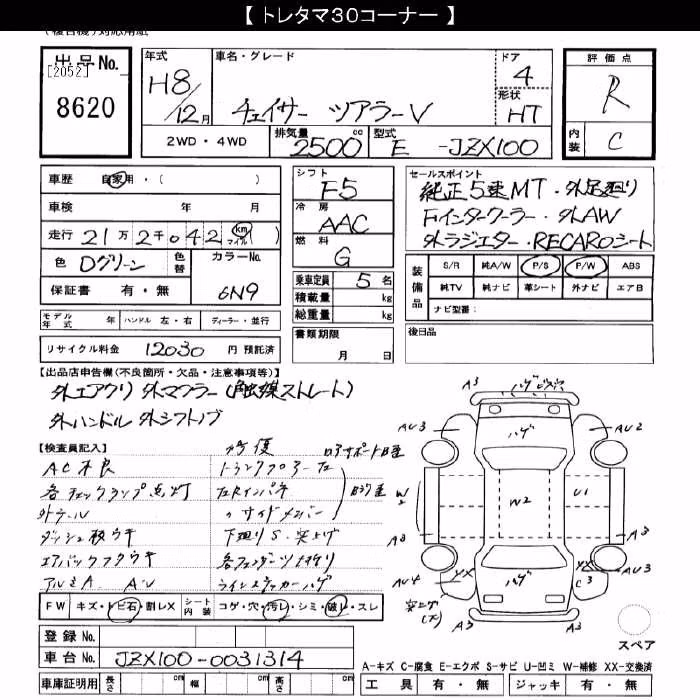 【 トレタマ30コーナー 】
出品No.
[2052]
8620
年式
H8/12月
車名・グレード
チェイサー ツアラーV
ドア
4
形状
HT
2WD・4WD
排気量
2500cc
型式
E -JZX100
評価点
R
内装
C
車歴 自家用・( )
車検 年 月
走行 21万2千042 km マイル ( )
色 Dグリーン 色替
カラーNo.
6N9
保証書 有・無
シフト
F5
冷房
AAC
燃料
G
乗車定員 5名
積載量 kg
総重量 kg
書類期限
月 日
セールスポイント
純正5速MT・外足廻り
Fインタークーラー・外AW
外ラジエター・RECAROシート
装備品
S/R 純A/W P/S P/W ABS
純TV 純ナビ 革シート 外ナビ エアB
ナビ型番:
モデル年式 年 ハンドル 左・右 ディーラー・並行
後日品
リサイクル料金 12030 円 預託済
【出品店申告欄(不良箇所・欠品・注意事項等)】
外エアクリ 外マフラー(触媒ストレート)
外ハンドル 外シフトノブ
【検査員記入】
修復
AC不良
各チェックランプ点灯
外テール
ダッシュ板ウキ
エアバックフタウキ
トランクフロアー
サイドメンバー
下廻りS・突上げ
ラインステッカーハゲ
FW キズ・トビ石・割レX
シート内装 コゲ・穴・汚レ・シミ・破レ・スレ
登録No.
車台No. JZX100-0031314
車庫証明用 長さ cm 幅 cm 高さ cm
A3
AU3
ハゲ
AU2
W2
W2
U1
A3
A3
AU4
XX
ハゲ
XX
C3
AU3
突上げ
(大)
A3
スペア
A-キズ C-腐食 E-エクボ S-サビ U-凹ミ W-補修 XX-交換済
工具 有・無 ジャッキ 有・無